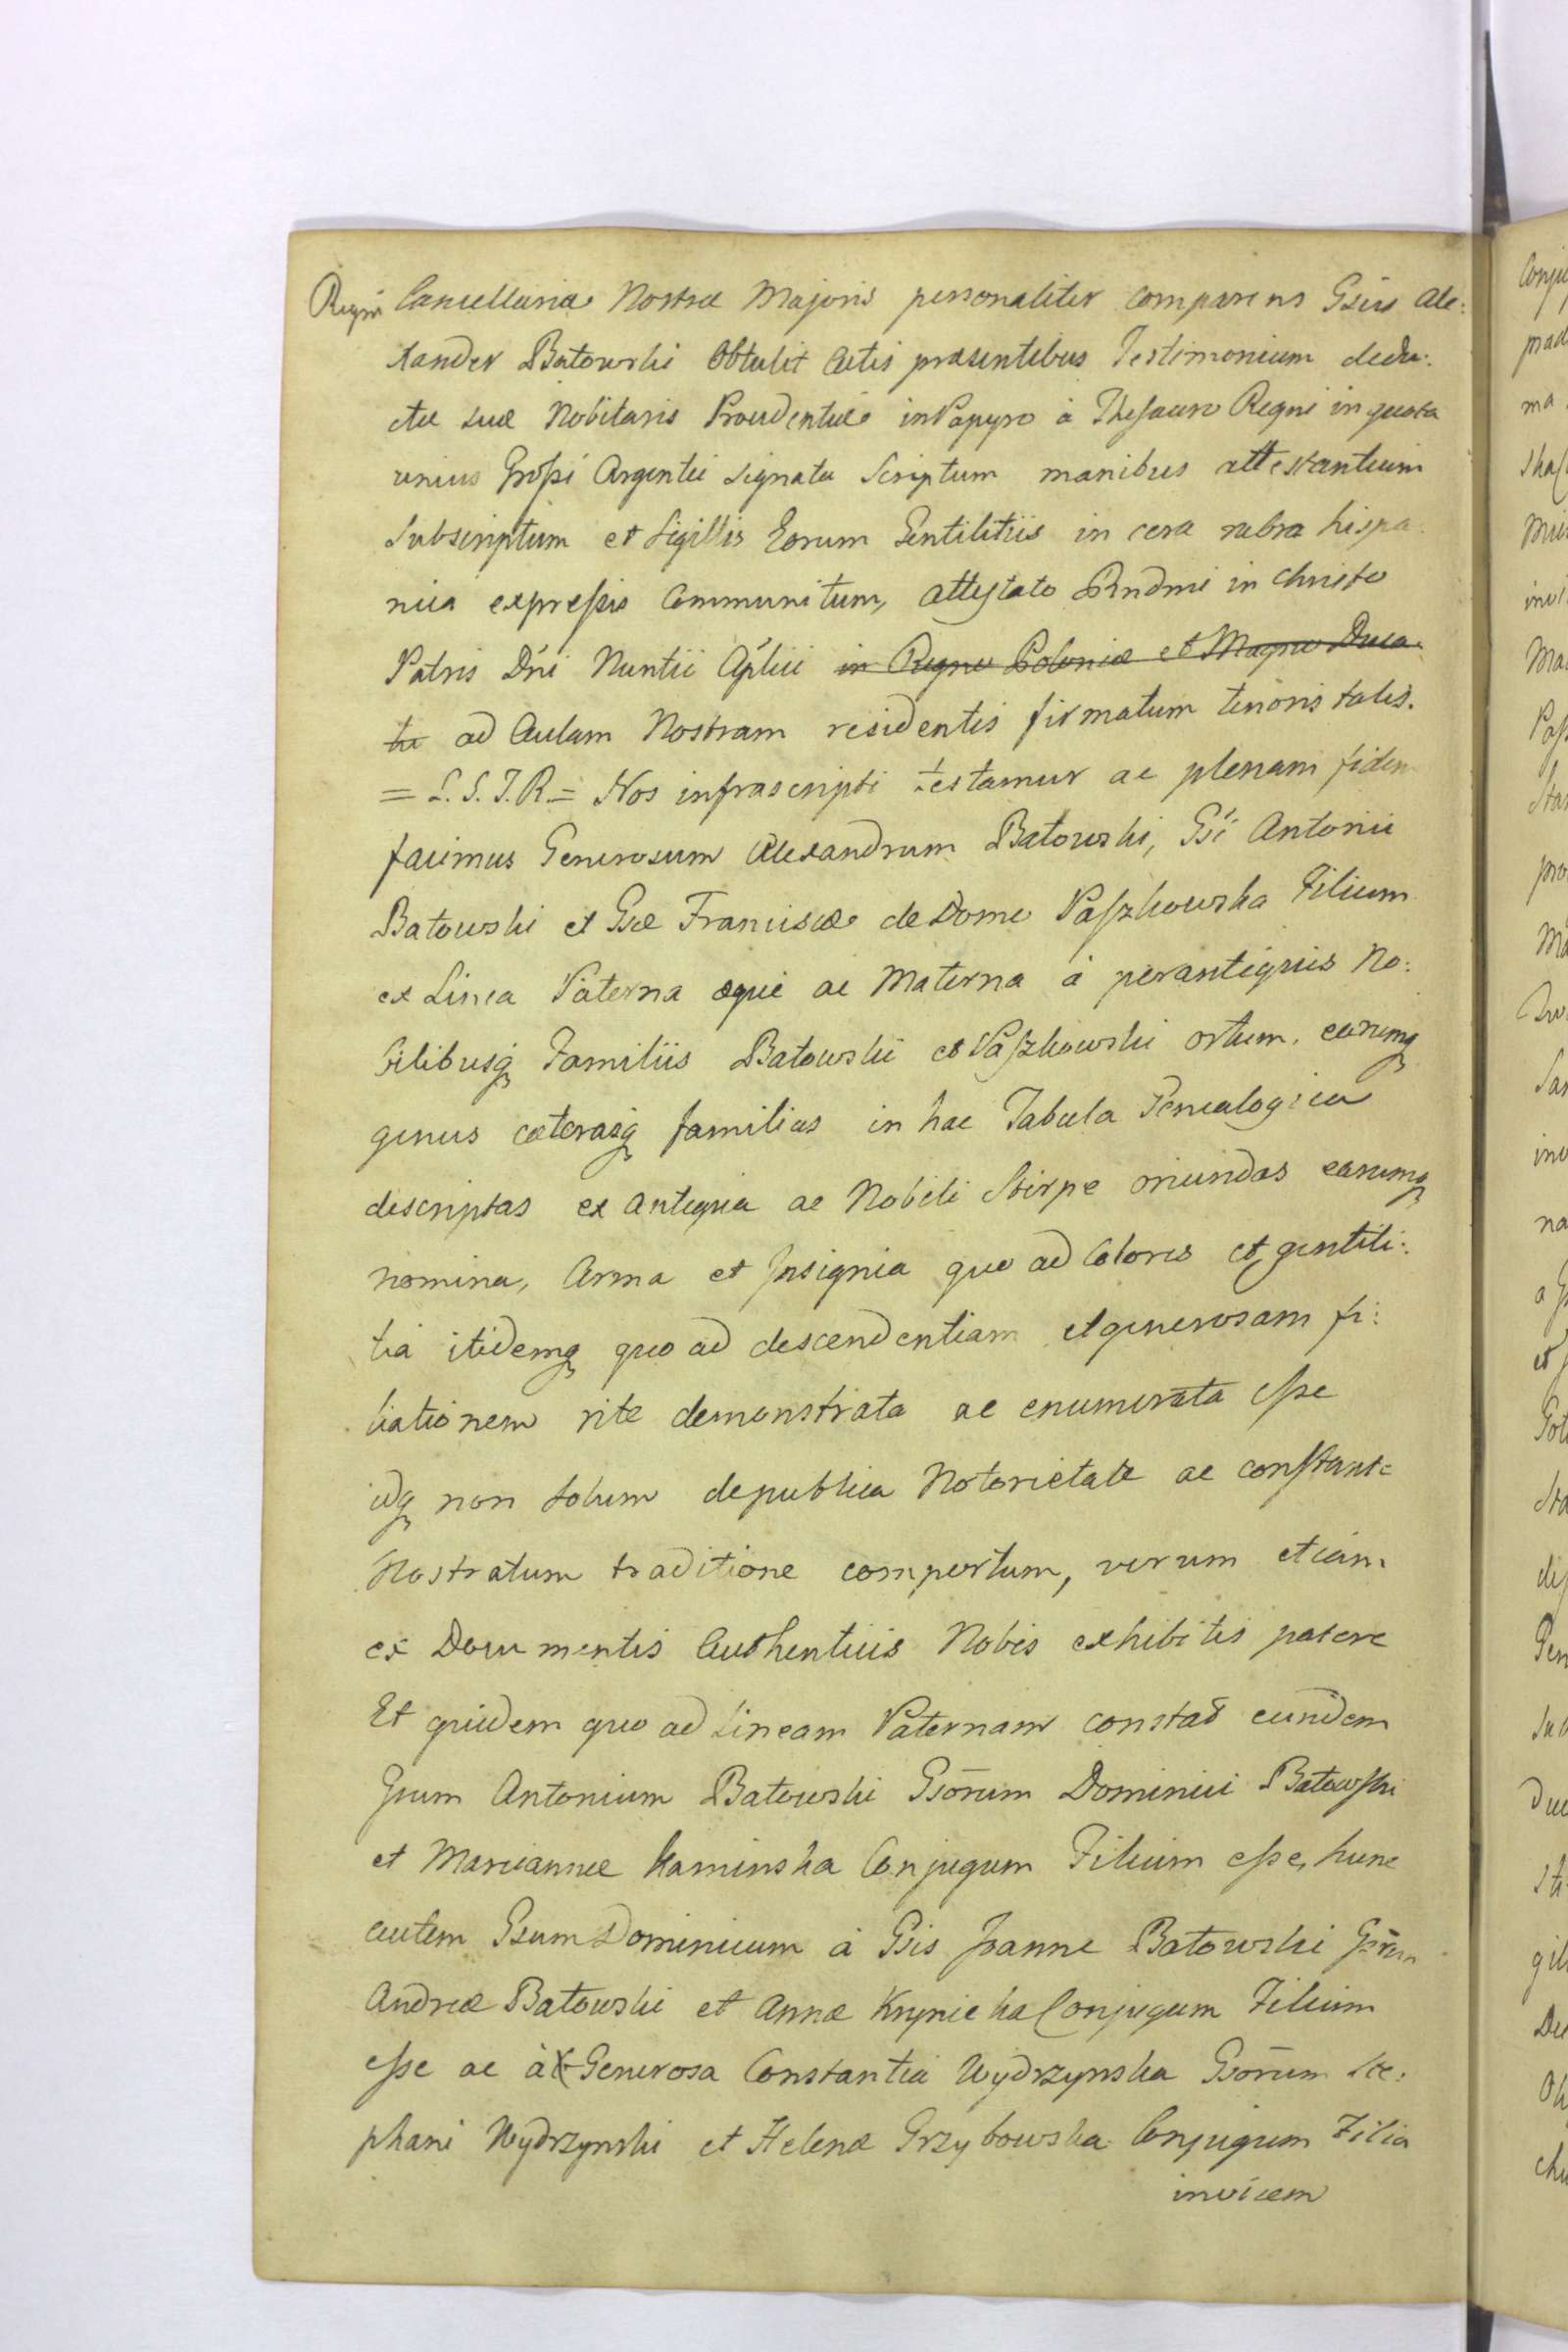 Regni Cancellariæ Nostræ Majoris personaliter comparens Gsus Ale:
xander Batowski Obtulit Actis præsentibus Testimonium dedu:
ctæ suæ Nobitaris Proudentiæ in Papyro à Thesauro Regni in quota
unius Grossi Argentei signata Scriptum manibus attestantium
Subscriptum et Sigillis Eorum Gentilitiis in cera rubra hispa
nica expressis Communitum, attestato Rndmi in Christo
Patris Dni Nuntii Aplici in Regno Poloniæ et Magno Duca
tu ad Aulam Nostram residentis firmatum tenoris talis.
= L.S.J.R. = Nos infrascripti testamur ac plenam fidem
facimus Generosum Alexandrum Batowski, Gsi Antonii
Batowski et Gsæ Franciscæ de Domo Paszkowska Filium
ex Linea Paterna æque ac Materna à perantiquis No:
bilibusq Familiis Batowski et Paszkowski ortum, earumq
genus cæterasq familias in hac Tabula Genealogica
descriptas ex antiqua ac Nobili Stirpe oriundas earumq
nomina, Arma et Insignia quo ad Colores et gentili:
tia itidemq quo ad descendentiam et generosam fi:
liationem rite demonstrata ac enumerata esse
idq non solum de publica Notorietate ac constante
Nostratum traditione compertum, verum etiam
ex Documentis Authenticis Nobis exhibitis patere
Et quidem quo ad Lineam Paternam constat eundem
Gsum Antonium Batowski Gsorum Dominici Batowski
et Mariannæ Kaminska Conjugum Filium esse, hunc
autem Gsum Dominicum à Gsis Joanne Batowski Gsrum
Andreæ Batowski et Annæ Krynicka Conjugum Filium
esse ac à Generosa Constantia Wydrzynska Gsorum Ste:
phani Wydrzynski et Helenæ Grzybowska Conjugum Filia
invicem